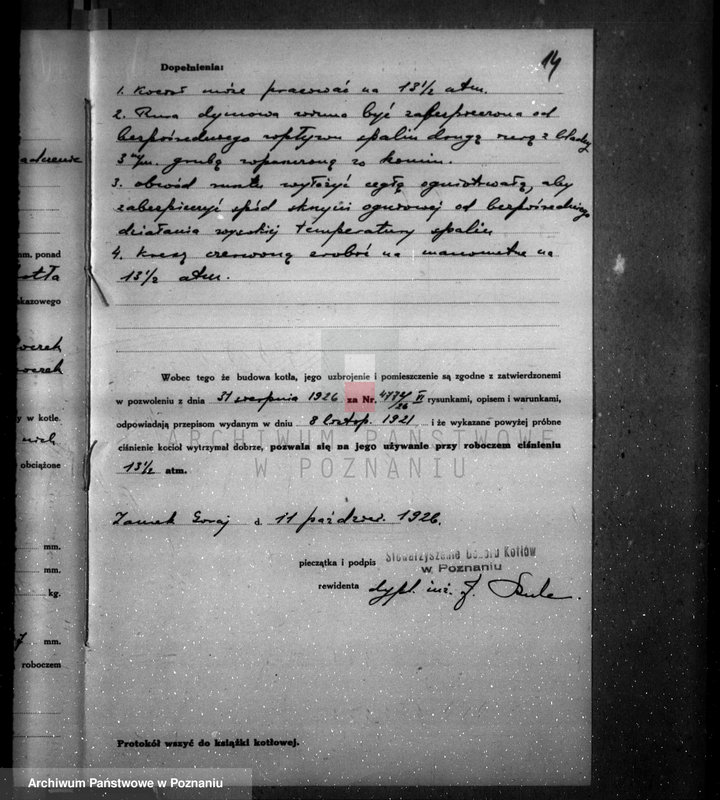 14
Dopełnienia:
1. Kocioł może pracować na 13 1/2 atm.
2. Rura dymowa winna być zabezpieczona od
bezpośredniego wpływu spalin drugą rurą z blachy
3 m/m. grubą wpuszczoną w komin.
3. obwód wyłożyć cegłą ogniotrwałą, aby
zabezpieczyć spód skrzyni ogniowej od bezpośredniego
działania wysokiej temperatury spalin
4. Kreskę czerwoną zrobić na manometrze na
13 1/2 atm.
Wobec tego że budowa kotła, jego uzbrojenie i pomieszczenie są zgodne z zatwierdzonemi
w pozwoleniu z dnia 31 sierpnia 1926 za Nr. /26 VI rysunkami, opisem i warunkami,
odpowiadają przepisom wydanym w dniu 8 listop. 1921 i że wykazane powyżej próbne
ciśnienie kocioł wytrzymał dobrze, pozwala się na jego używanie przy roboczem ciśnieniu
13 1/2 atm.
Zamek Goraj d. 11 paździer. 1926.
pieczątka i podpis Stowarzyszenie Dozoru Kotłów
w Poznaniu
rewidenta dypl. inż.
Protokół wszyć do książki kotłowej.
nm. ponad
kotła
skazowego
y w kotle.
obciążone
mm.
mm.
kg.
mm.
roboczem
ARCHIWUM PAŃSTWOWE
W POZNANIU
Archiwum Państwowe w Poznaniu